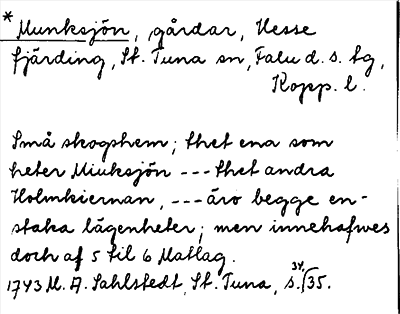 * Munksjön, gårdar, Hesse
fjärding, St. Tuna sn, Falu d. s. tg,
Kopp. l.
Små skogshem; thet ena som
heter Miuksjön --- thet andra
Holmkiernan, --- äro begge en-
staka lägenheter; men innehafwes
doch af 5 til 6 Matlag.
1743 M. A. Sahlstedt, St. Tuna, s. 34, 35.